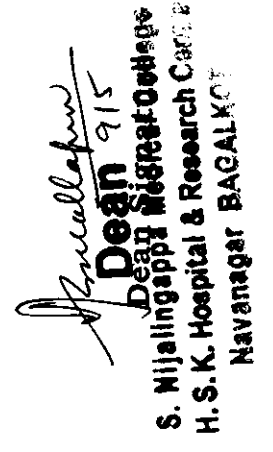 9/5
Dean
Dean Signature
S. Nijalingappa Medical College
H.S.K. Hospital & Research Centre
Navanagar BAGALKOT